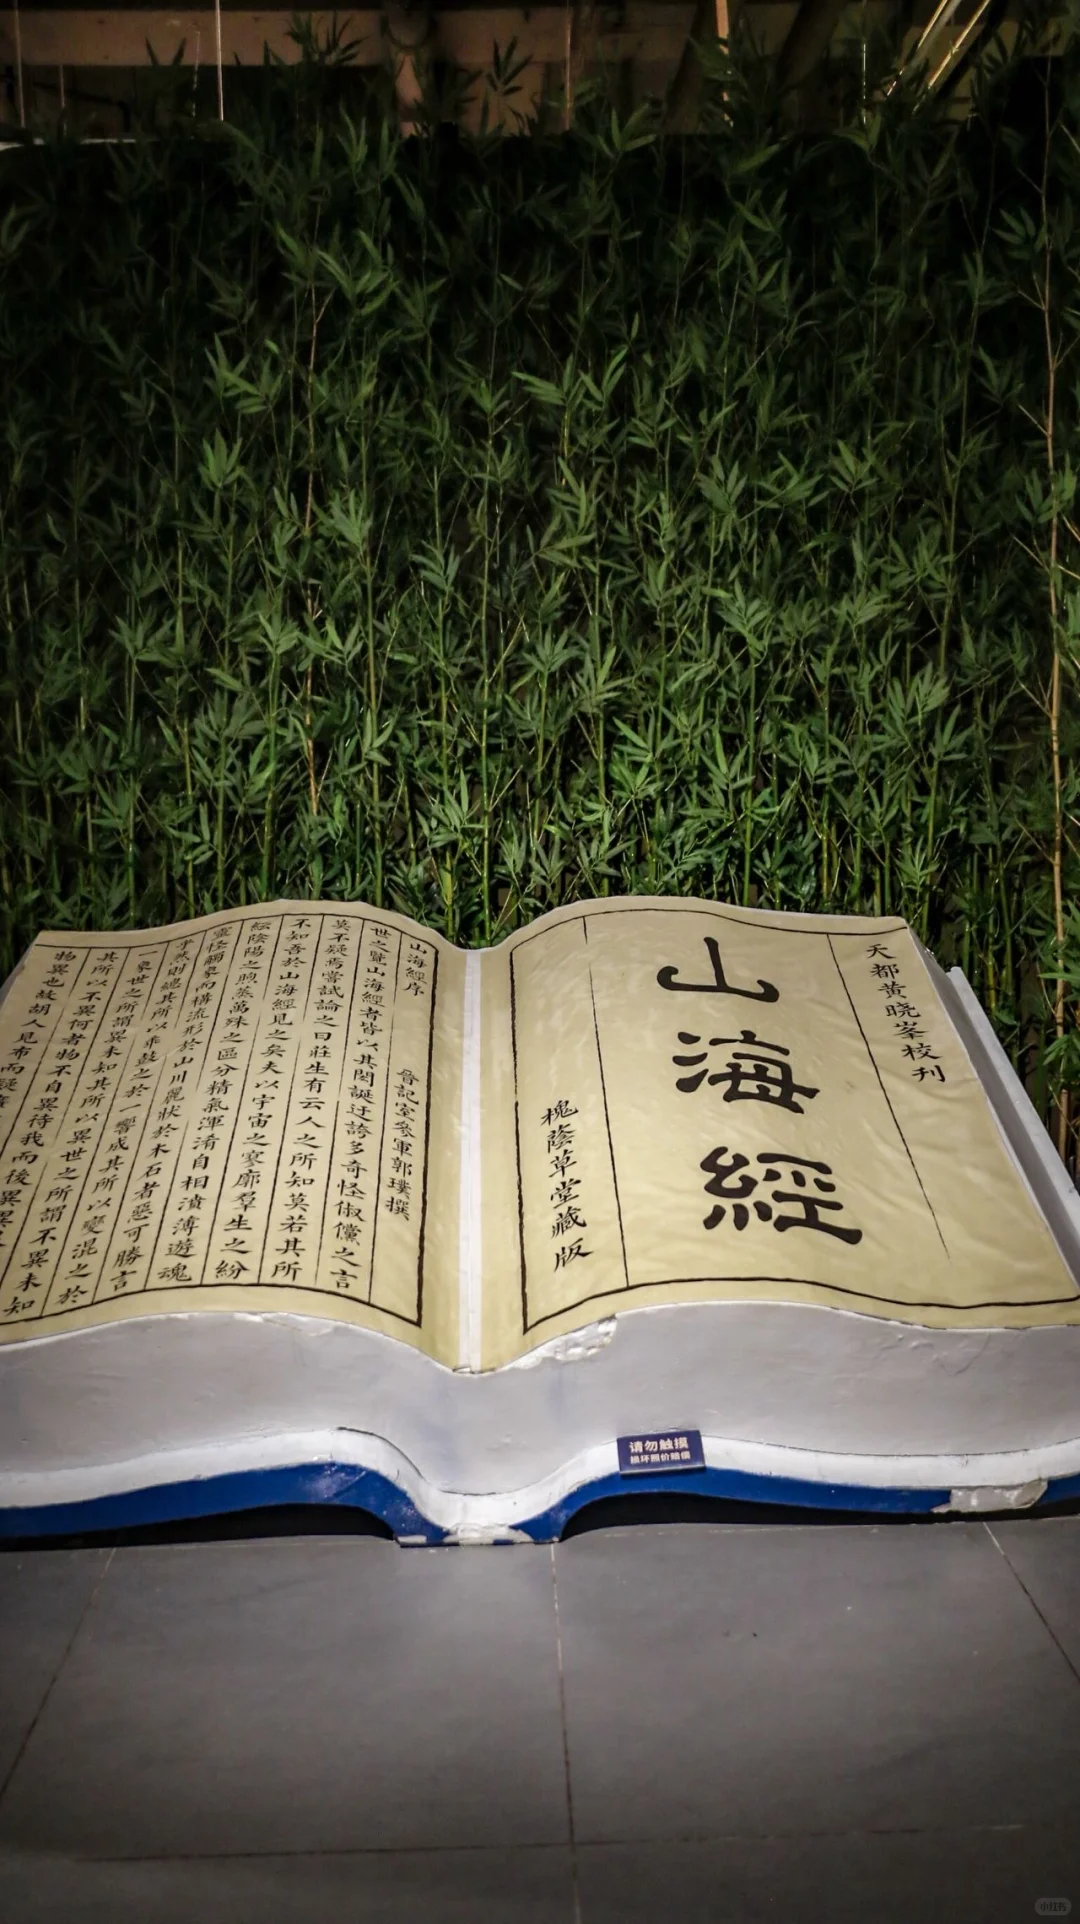 天都黄晓峯校刊
山海經
槐蔭草堂藏版
山海經序
晉記室參軍郭璞撰
世之覽山海經者皆以其閎誕迂誇多奇怪俶儻之言
莫不疑焉嘗試論之曰莊生有云人之所知莫若其所
不知吾於山海經見之矣夫以宇宙之寥廓羣生之紛
紜陰陽之煦蒸萬殊之區分精氣渾淆自相濆薄遊魂
靈怪觸象而構流形於山川麗狀於木石者惡可勝言
乎然則總其所以乖鼓之於一響成其所以變混之於
一象世之所謂異未知其所以異世之所謂不異未知
其所以不異何者物不自異待我而後異異
物異也故胡人見布而疑
请勿触摸
损坏照价赔偿
小红书